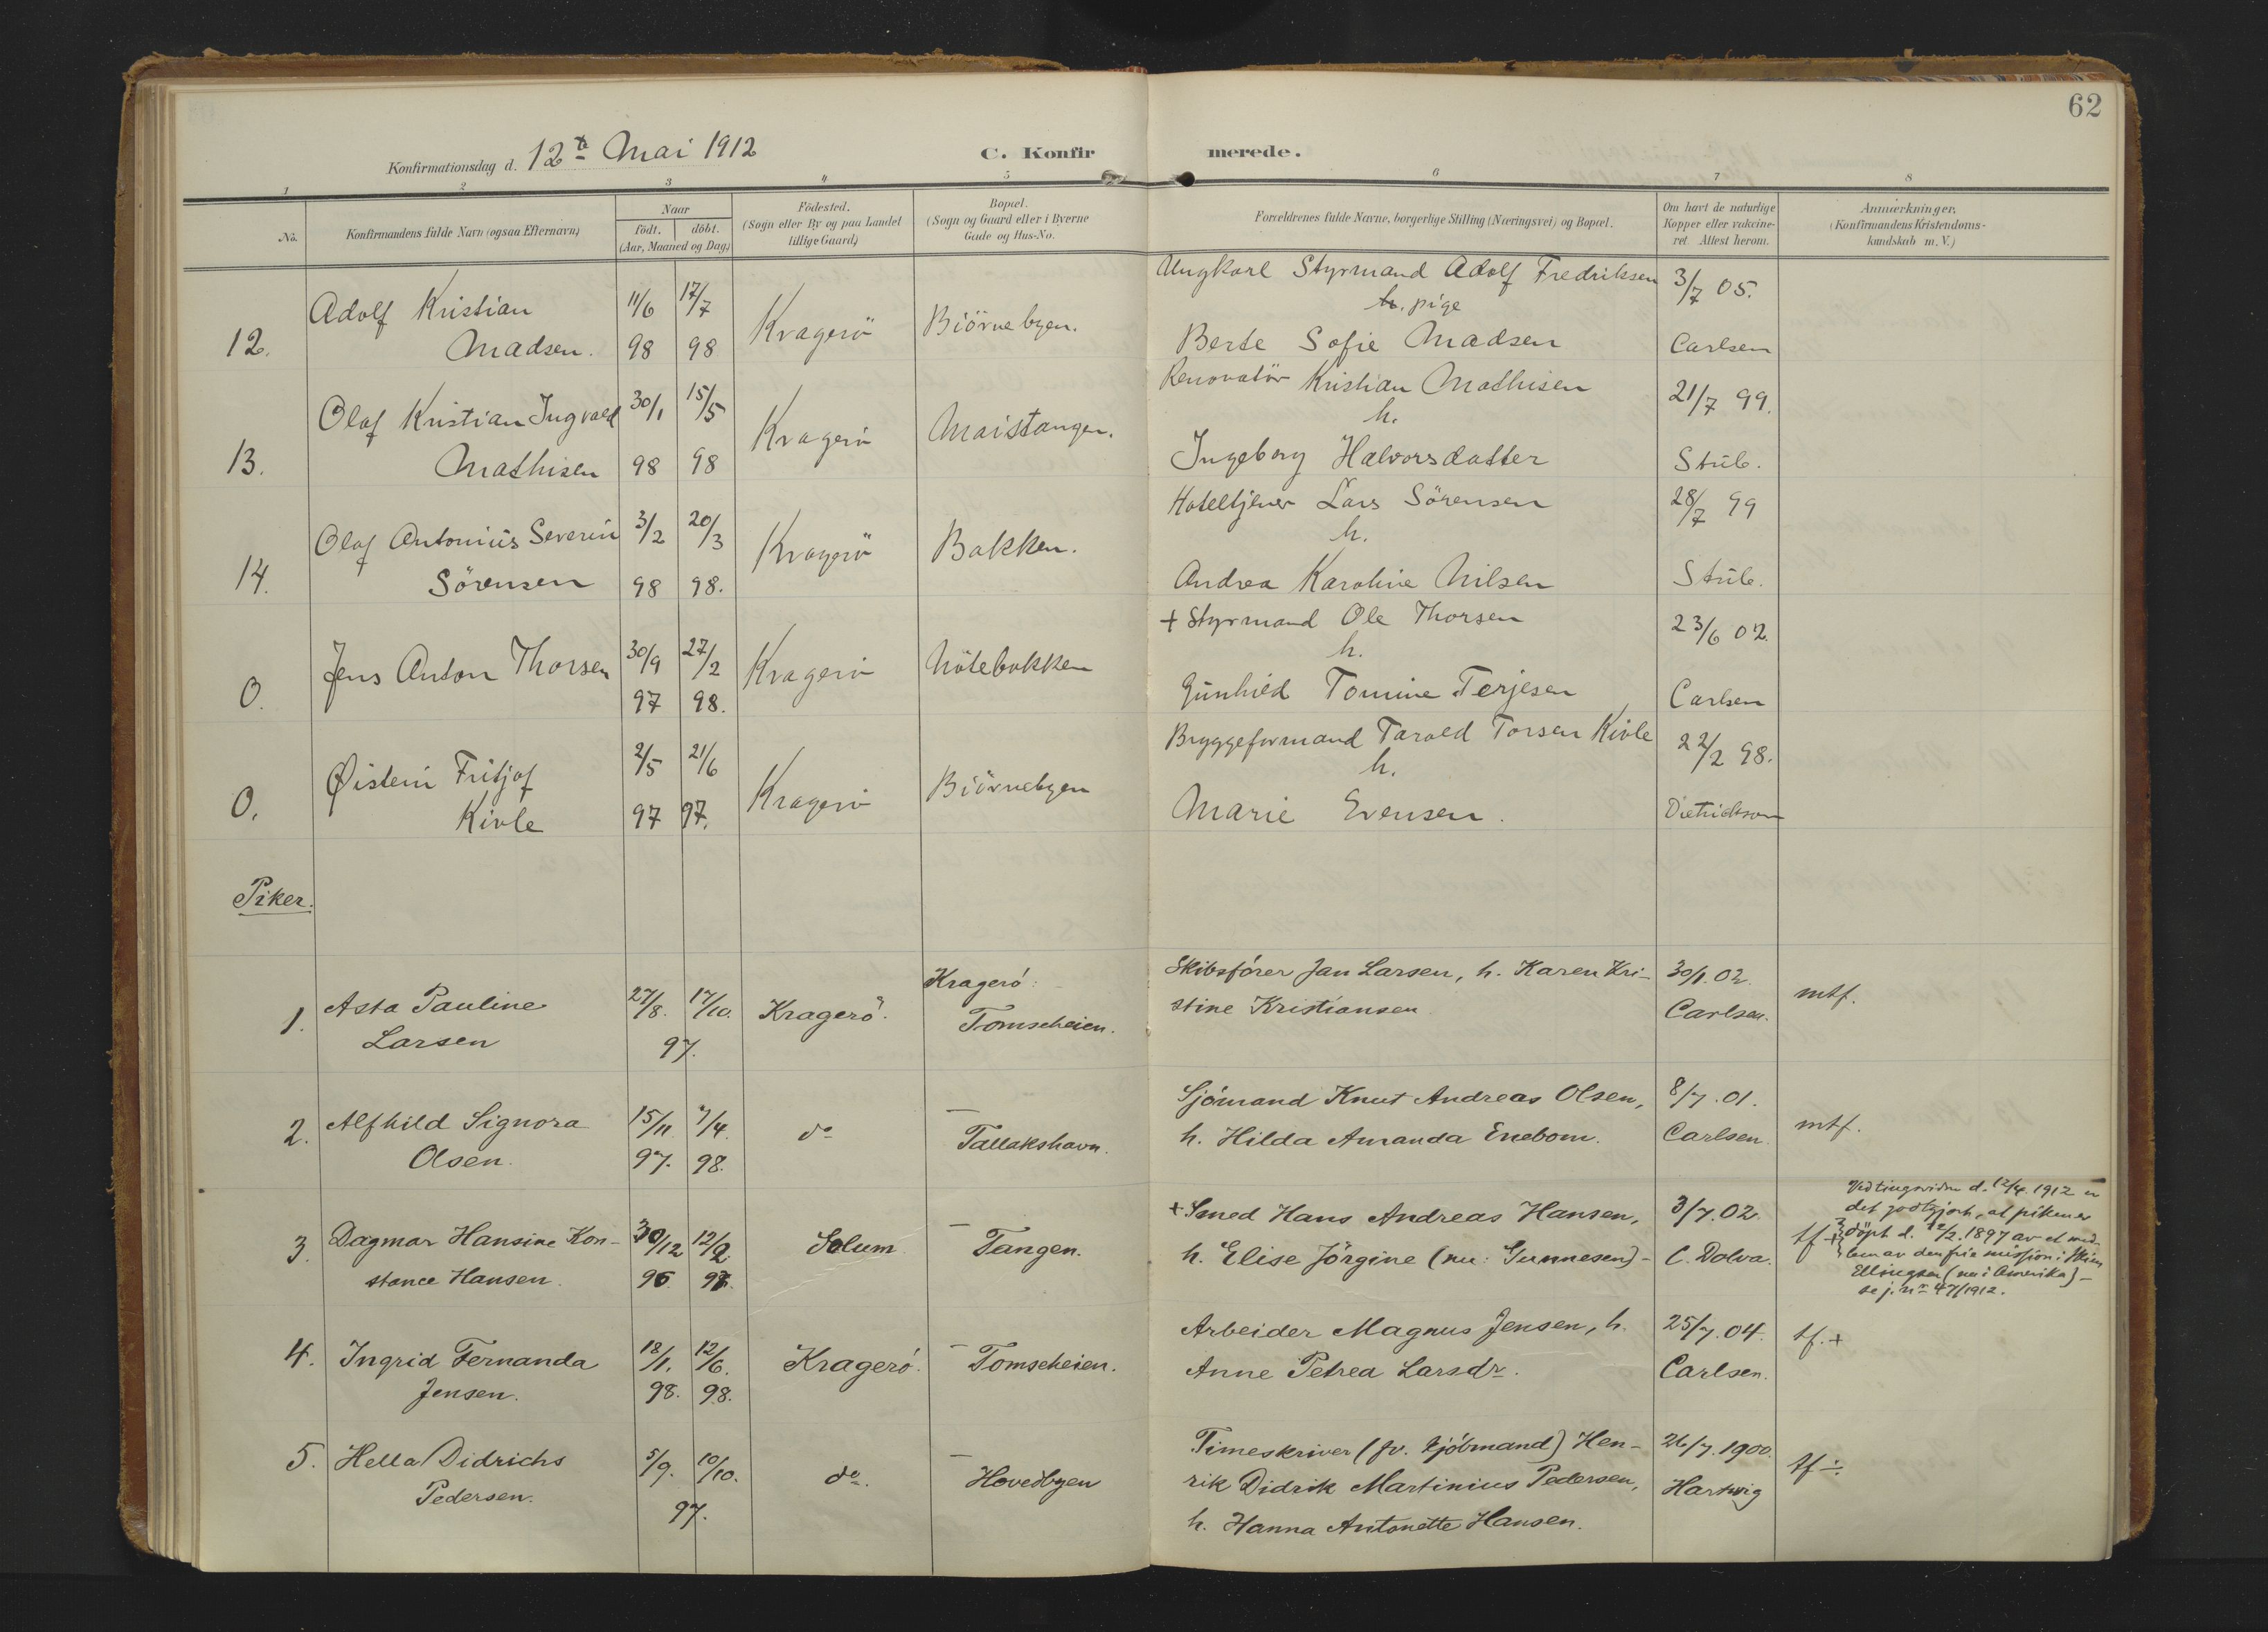 62
Konfirmationsdag d. 12te Mai 1912
C. Konfirmerede.
1 2 3 4 5 6 7 8
No.
Konfirmandens fulde Navn (ogsaa Efternavn)
Naar
födt. döbt.
(Aar, Maaned og Dag)
Födested.
(Sogn eller By og paa Landet
tillige Gaard)
Bopæl.
(Sogn og Gaard eller i Byerne
Gade og Hus-No.
Forældrenes fulde Navne, borgerlige Stilling (Næringsvei) og Bopæl.
Om havt de naturlige
Kopper eller vakcine-
ret. Attest herom.
Anmærkninger.
(Konfirmandens Kristendoms-
kundskab m. V.)
12. Adolf Kristian
Madsen.
11/6 98 17/7 98
Kragerö
Biörnebyen.
Ungkarl Styrmand Adolf Fredriksen
pige
Berte Sofie Madsen
3/7 05.
Carlsen
13. Olaf Kristian Ingvald
Mathisen
30/1 98 15/5 98
Kragerö
Maistangen.
Renovatör Kristian Mathisen
h.
Ingeborg Halvorsdatter
21/7 99.
Stub.
14. Olaf Antonius Severin
Sörensen
3/2 98 20/3 98.
Kragerö
Bakken.
Hoteltjener Lars Sörensen
h.
Andrea Karoline Nilsen
28/7 99
Stub.
0. Jens Anton Thorsen
30/9 97 27/2 98.
Kragerö
Nötebakken
+ Styrmand Ole Thorsen
h.
Gunhild Tomine Terjesen
23/6 02.
Carlsen
0. Øistein Fritjof
Kivle
2/5 97 21/6 97.
Kragerö
Biörnebyen
Bryggeformand Tarald Torsen Kivle
h.
Marie Evensen.
22/2 98.
Dietrichson
Piker.
1. Asta Pauline
Larsen
27/8. 17/10. 97.
Kragerö.
Kragerö:
Tomseheien.
Skibsförer Jan Larsen, h. Karen Kri-
stine Kristiansen
30/1.02.
Carlsen.
mtf.
2. Alfhild Signora
Olsen.
15/11. 97. 7/4. 98.
do
— Tallakshavn.
Sjömand Knut Andreas Olsen,
h. Hilda Amanda Enebom.
8/7.01.
Carlsen
mtf.
3. Dagmar Hansine Kon-
stance Hansen.
30/12 96 12/2. 97.
Solum
— Tangen.
+ Smed Hans Andreas Hansen,
h. Elise Jörgine (nu: Gunnesen) -
3/7.02.
C. Dolva.
tf +
d. 12/4. 1912 er
det godtgjort, at piken er
döpt d. 12/2. 1897 av et med-
lem av den frie mission:
Ellingsen (nu i Amerika) -
se j. nr 47/1912.
4. Ingrid Fernanda
Jensen.
18/1. 98. 12/6. 98.
Kragerö.
— Tomseheien.
Arbeider Magnus Jensen, h.
Anne Petrea Larsdr.
25/7.04.
Carlsen.
tf. +
5. Hella Didrichs
Pedersen.
5/9. 10/10. 97.
do.
— Hovedbyen
Timeskriver (fv. kjöbmand) Hen-
rik Didrik Martinius Pedersen,
h. Hanna Antonette Hansen.
26/7.1900.
Hartvig
tf ÷